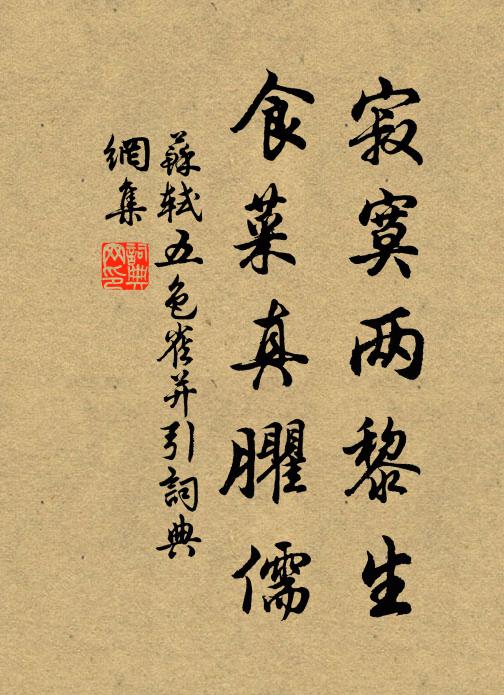 寂寞两黎生
食菜真臞儒
蘇軾五色雀并引詞典
網集
詞典
网印